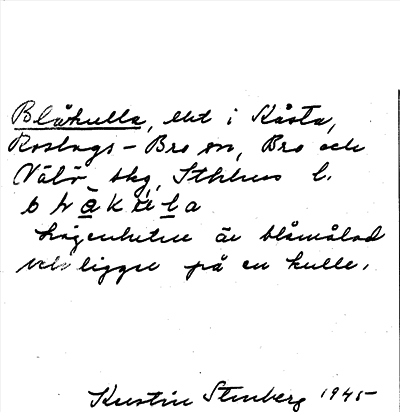 Blåkulla, lht i Kåsta,
Roslags-Bro sn, Bro och
Vätö skg, Sthlms l.
Lägenheten är blåmålad
och ligger på en kulle.
Kerstin Stenberg 1945